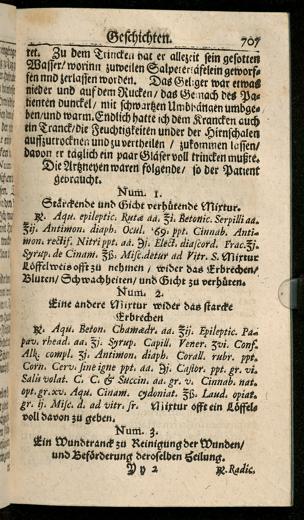 Geschichten. 707
tet. Zu dem Trincken hat er allezeit sein gesotten
Wasser/ worinn zuweilen Salpetertäfelein geworf-
fen und zerlassen worden. Das Geläger war etwas
nieder und auf dem Rucken/ das Gemach des Pa-
tienten dunckel/ mit schwartzen Umbhängen umbge-
ben/ und warm. Endlich hatte ich dem Krancken auch
ein Tranck/ die Feuchtigkeiten under der Hirnschalen
auffzutrocknen und zu vertheilen/ zukommen lassen/
davon er täglich ein paar Gläser voll trincken mußte.
Die Artzneyen waren folgende/ so der Patient
gebraucht.
Num. 1.
Stärckende und Gicht verhütende Mixtur.
℞. Aqu. epileptic. Rutæ aa. ℥i. Betonic. Serpilli aa.
℥ij. Antimon. diaph. Ocul. 69. ppt. Cinnab. Anti-
mon. rectif. Nitri ppt. aa. ℈i. Elect. diascord. Frac. ℥i.
Syrup. de Cinam. ℥ß. Misc. detur ad Vitr. S. Mixtur
Löffelweis offt zu nehmen/ wider das Erbrechen/
Bluten/ Schwachheiten/ und Gicht zu verhüten.
Num. 2.
Eine andere Mixtur wider das starcke
Erbrechen
℞. Aqu. Beton. Chamædr. aa. ℥ij. Epileptic. Pa-
pav. rhead. aa. ℥j. Syrup. Capill. Vener. ʒvi. Conf.
Alk. compl. ʒj. Antimon. diaph. Corall. rubr. ppt.
Corn. Cerv. sine igne ppt. aa. ℈j. Castor. ppt. gr. vi.
Salis volat. C. C. & Succin. aa. gr. v. Cinnab. nat.
opt. gr. xv. Aqu. Cinam. cydoniat. ℥ß. Laud. opiat.
gr. ij. Misc. d. ad vitr. sr. Mixtur offt ein Löffels
voll davon zu geben.
Num. 3.
Ein Wundtranck zu Reinigung der Wunden/
und Beförderung deroselben Heilung.
Yy 2 ℞. Radic.